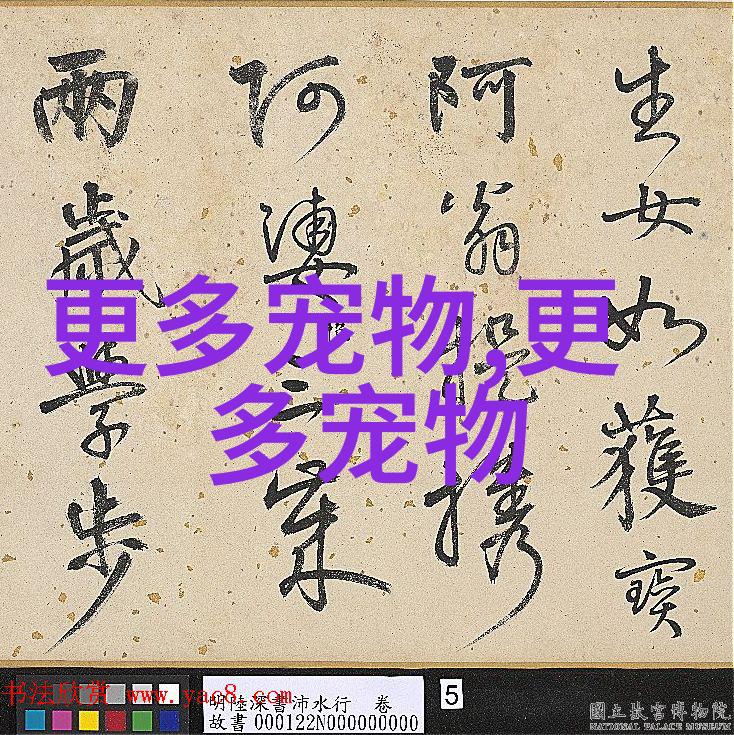 生女如獲寶
阿翁携
阿婆
兩歲學步
更多宠物,更
多宠物
书法欣赏 www.yac8.com
明陸深書沛水行 卷
故書 000122N000000000
5
國立故宮博物院
NATIONAL PALACE MUSEUM